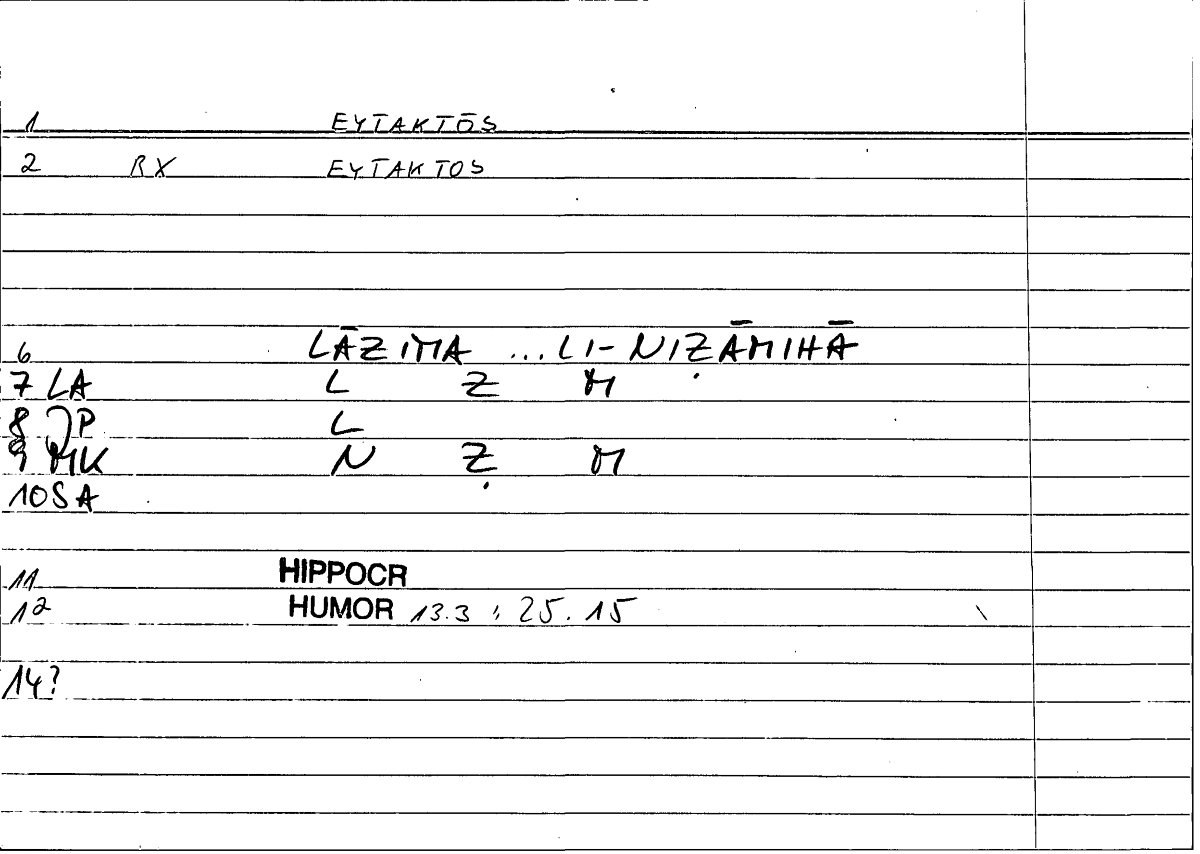 1 EYTAKTŌS
2 RX EYTAKTOS
6 LĀZIMA ... LI-NIẒĀMIHĀ
7 LA L Z M
8 JP L
9 MK N Ẓ M
10 SA
11 HIPPOCR
12 HUMOR 13.3 ; 25.15
14?